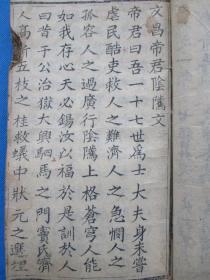 文昌帝君陰隲文
帝君曰吾一十七世爲士大夫身未嘗
虐民酷吏救人之難濟人之急憫人之
孤容人之過廣行陰隲上格蒼穹人能
如我存心天必錫汝以福於是訓於人
曰昔于公治獄大興駟馬之門竇氏濟
人高折五枝之桂救蟻中狀元之選埋